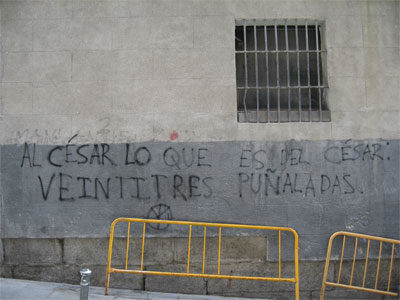 AL CÉSAR LO QUE ES DEL CÉSAR:
VEINTITRES PUÑALADAS.